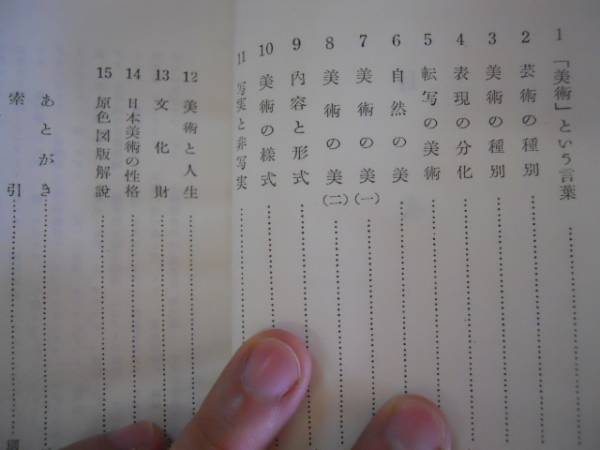 1 「美術」という言葉
2 芸術の種別
3 美術の種別
4 表現の分化
5 転写の美術
6 自然の美
7 美術の美(一)
8 美術の美(二)
9 内容と形式
10 美術の様式
11 写実と非写実
12 美術と人生
13 文化財
14 日本美術の性格
15 原色図版解説
あとがき
索引